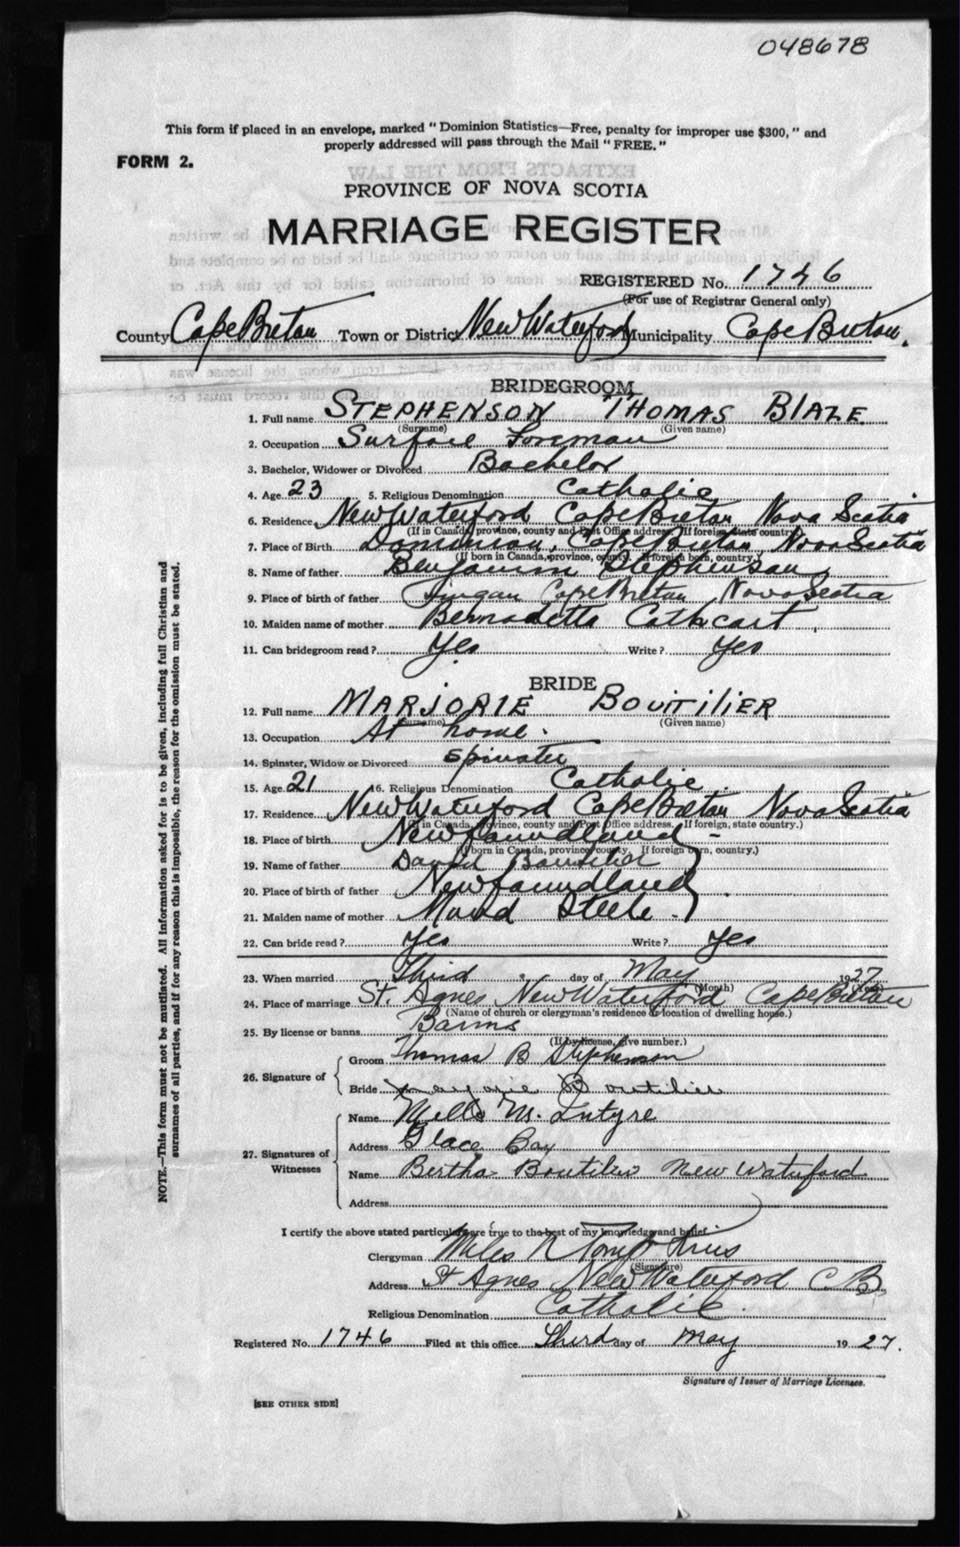 048678
This form if placed in an envelope, marked "Dominion Statistics—Free, penalty for improper use $300," and
properly addressed will pass through the Mail "FREE."
FORM 2.
EXTRACTS FROM THE LAW
PROVINCE OF NOVA SCOTIA
MARRIAGE REGISTER
REGISTERED No. 1746
(For use of Registrar General only)
County Cape Breton Town or District New Waterford Municipality Cape Breton.
BRIDEGROOM
1. Full name STEPHENSON THOMAS BLAZE
(Surname) (Given name)
2. Occupation Surface Foreman
3. Bachelor, Widower or Divorced Bachelor
4. Age 23 5. Religious Denomination Catholic
6. Residence New Waterford Cape Breton Nova Scotia
(If in Canada, province, county and Post Office address. If foreign state country)
7. Place of Birth Dominion, Cape Breton Nova Scotia
(If born in Canada, province, county. If foreign born, country.)
8. Name of father Benjamin Stephenson
9. Place of birth of father Lingan Cape Breton Nova Scotia
10. Maiden name of mother Bernadette Cathcart
11. Can bridegroom read? Yes Write? Yes
BRIDE
12. Full name MARJORIE BOUTILIER
(Surname) (Given name)
13. Occupation At home.
14. Spinster, Widow or Divorced Spinster
15. Age 21 16. Religious Denomination Catholic
17. Residence New Waterford Cape Breton Nova Scotia
(If in Canada, province, county and Post Office address. If foreign, state country.)
18. Place of birth Newfoundland
(If born in Canada, province, county. If foreign born, country.)
19. Name of father David Boutilier
20. Place of birth of father Newfoundland
21. Maiden name of mother Maud Steele
22. Can bride read? Yes Write? Yes
23. When married Third day of May 1927
(Month) (Year)
24. Place of marriage St. Agnes New Waterford Cape Breton
(Name of church or clergyman's residence or location of dwelling house.)
25. By license or banns Banns
(If by license, give number.)
26. Signature of
Groom Thomas B Stephenson
Bride Marjorie Boutilier
27. Signatures of Witnesses
Name M. Intyre
Address Glace Bay
Name Bertha Boutilier New Waterford
Address
I certify the above stated particulars are true to the best of my knowledge and belief
Clergyman Miles N Tompkins
(Signature)
Address St Agnes New Waterford C B.
Religious Denomination Catholic
Registered No. 1746 Filed at this office Third day of May 1927.
Signature of Issuer of Marriage Licenses.
[SEE OTHER SIDE]
NOTE.—This form must not be mutilated. All information asked for is to be given, including full Christian and
surnames of all parties, and if for any reason this is impossible, the reason for the omission must be stated.